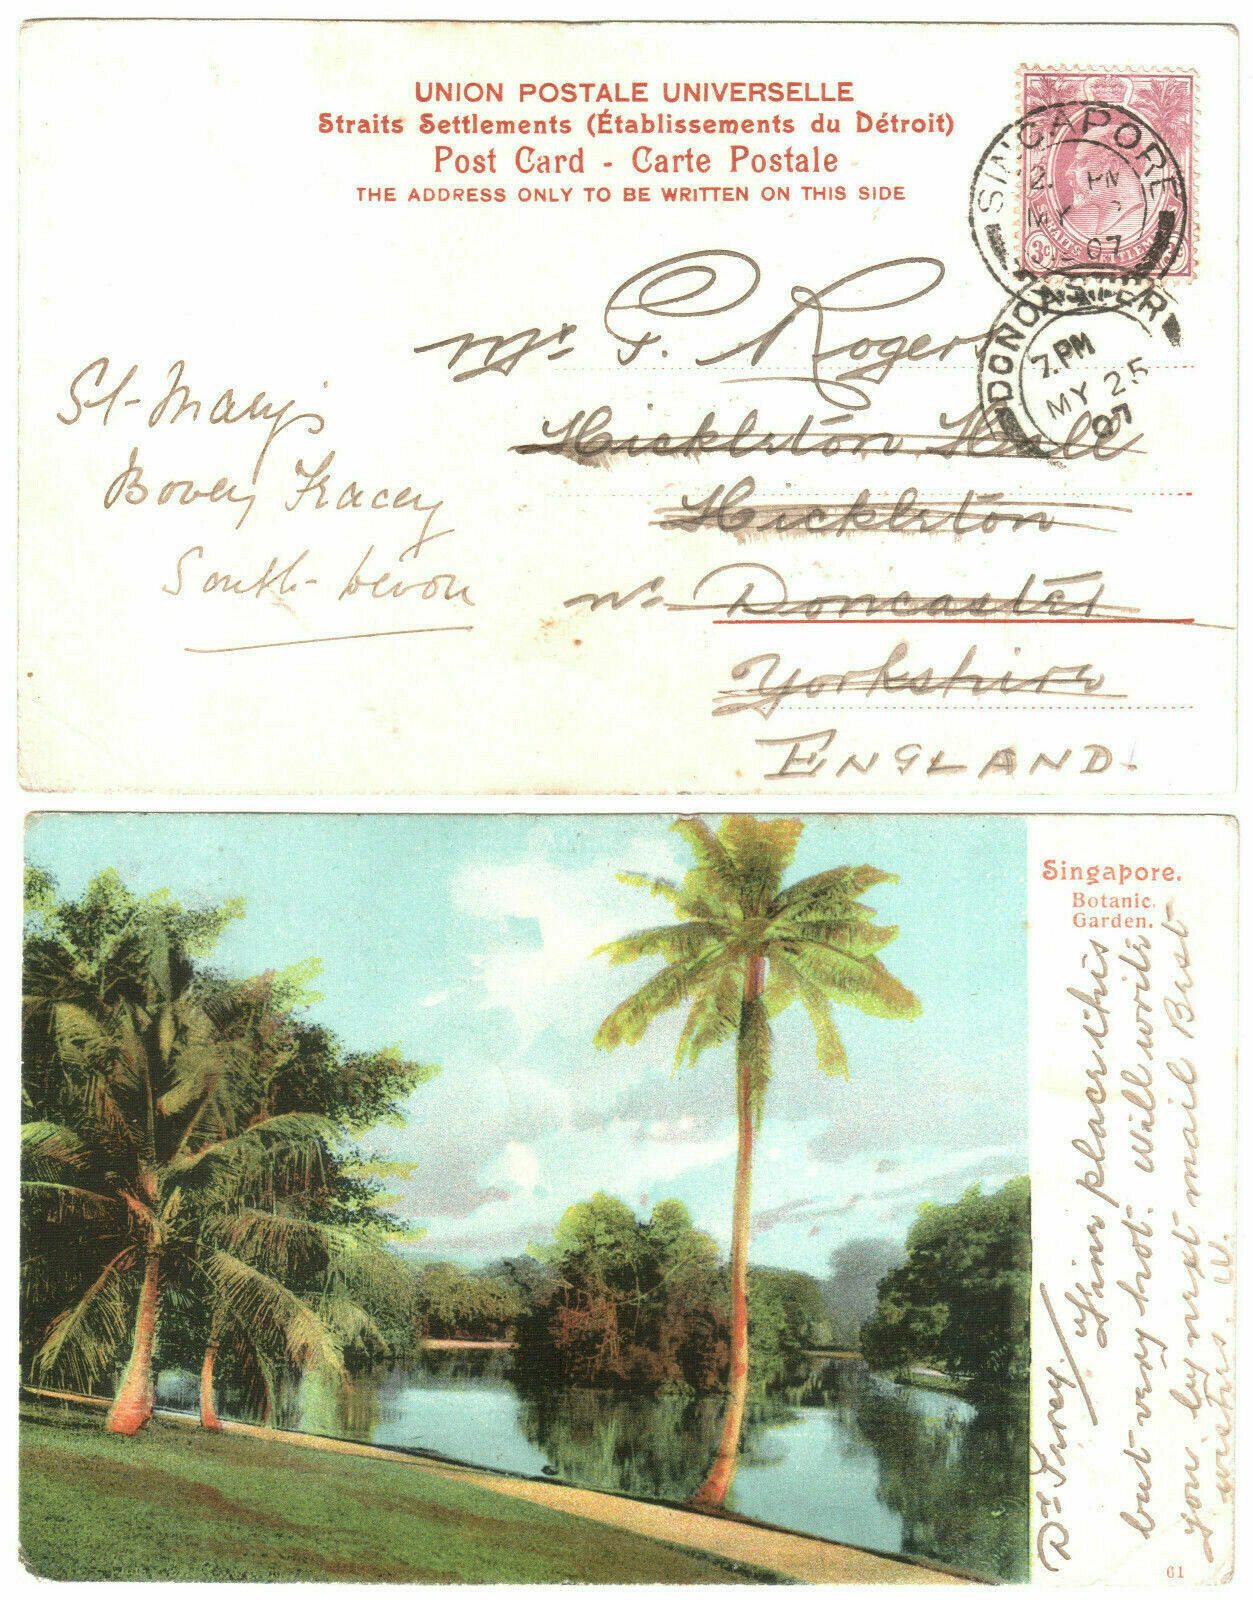 UNION POSTALE UNIVERSELLE
Straits Settlements (Établissements du Détroit)
Post Card - Carte Postale
THE ADDRESS ONLY TO BE WRITTEN ON THIS SIDE
SINGAPORE
2. PM
MY
07
3c
STRAITS SETTLEMENTS
DONCASTER
7. PM
MY 25
07
Mr. P. Rogers
Hickleton Hall
Hickleton
Nr. Doncaster
Yorkshire
ENGLAND.
St. Mary's
Bovey Tracey
South Devon
Singapore.
Botanic.
Garden.
Dr
Fine place this
but very hot. Will write
you by next mail Best
wishes. W.
61